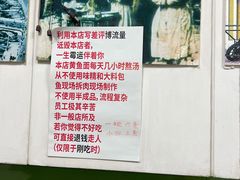 利用本店写差评博流量
诋毁本店者，
一生霉运伴着你
本店黄鱼面每天几小时熬汤
从不使用味精和大料包
鱼现场拆肉现场制作
不使用半成品，流程复杂
员工极其辛苦
非一般店所及
若你觉得不好吃
可走人
可直接退钱走人
(仅限于刚吃时)